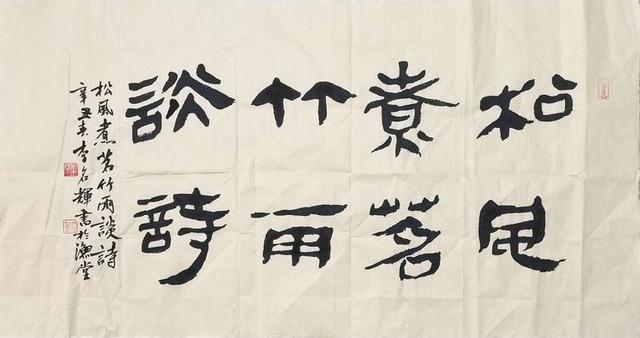 松風
煮茗
竹雨
談詩
松風煮茗竹雨談詩
辛丑春李名輝書於堂